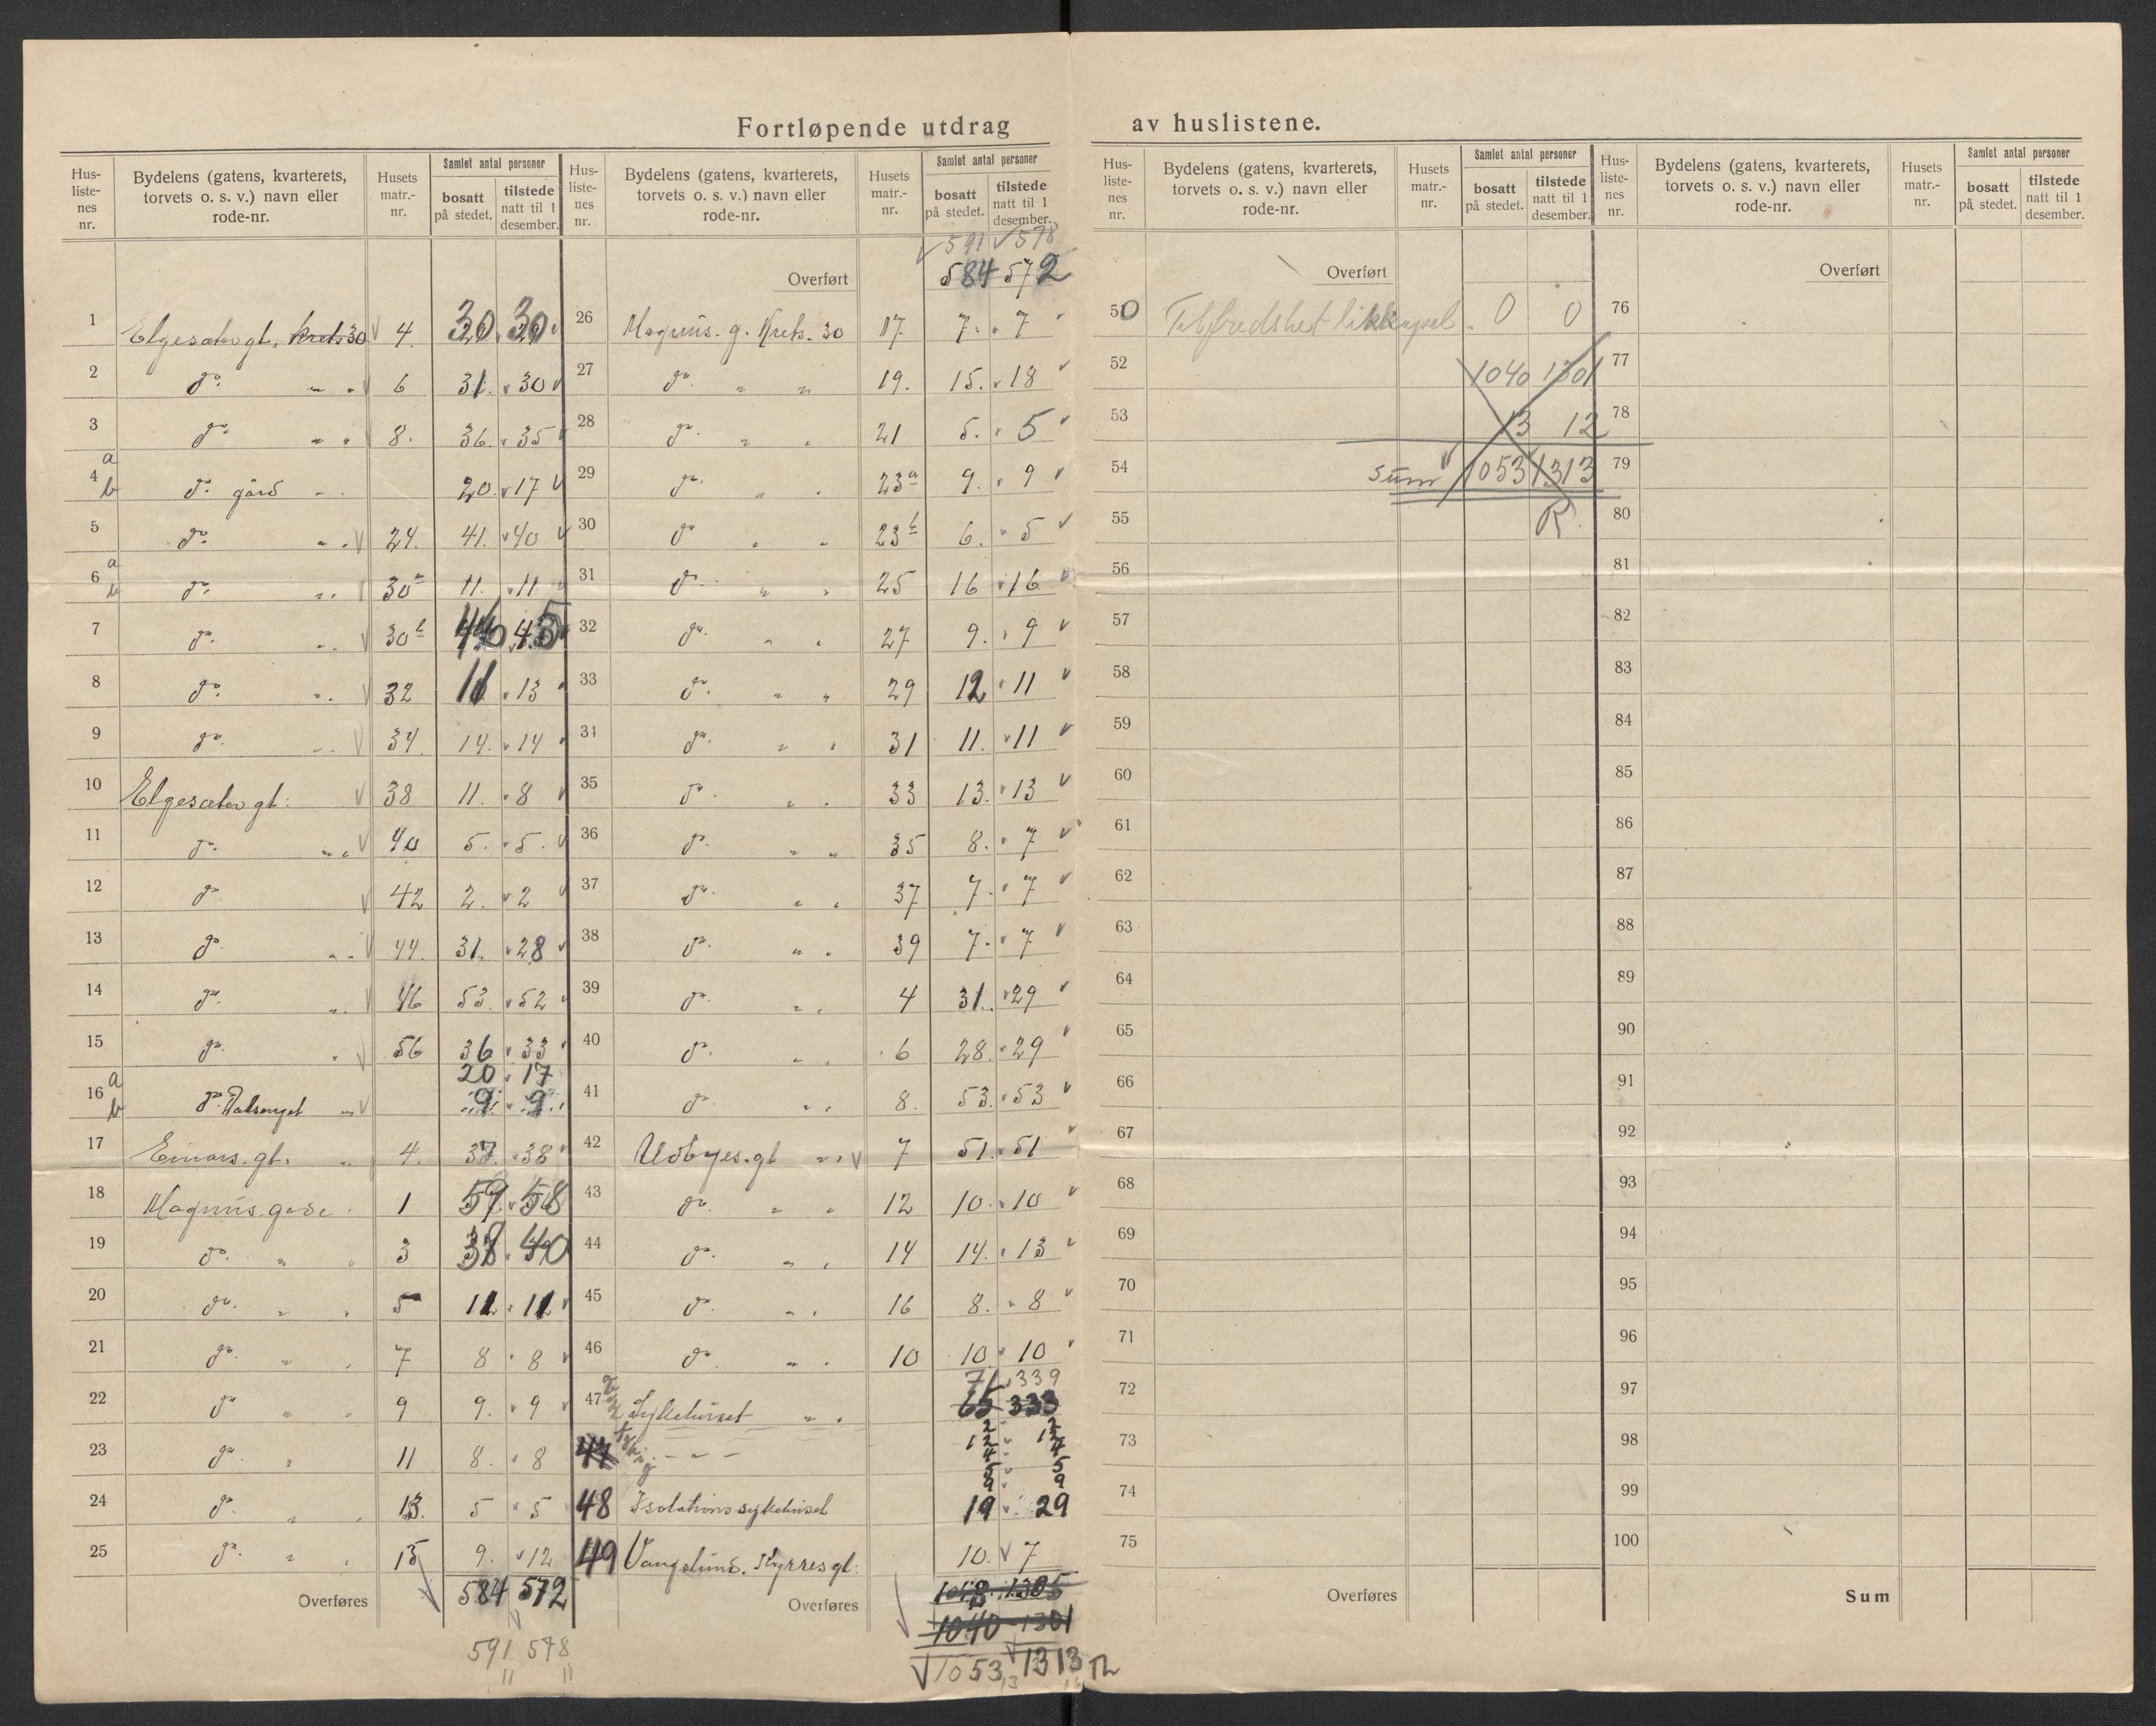 Fortløpende utdrag av huslistene.
Hus-liste-nes nr. Bydelens (gatens, kvarterets, torvets o. s. v.) navn eller rode-nr. Husets matr.-nr. Samlet antal personer bosatt på stedet. tilstede natt til 1 desember.
1 Elgesæter gt. krets 30 4. 30 30
2 do. " " 6 31. 30
3 do. " " 8. 36. 35
4 a b do. gård 20. 17
5 do. " " 24. 41. 40
6 a b do. " " 30a 11. 11
7 do. " " 30b 46 45
8 do. " " 32 11 13
9 do. " " 34. 14. 14
10 Elgesæter gt: 38 11. 8
11 do. " " 40 5. 5.
12 do. 42 2. 2
13 do. " " 44. 31. 28
14 do. " 46 53. 52
15 do. " 56 36 33
20 17
16 a b do. 9 9
17 Einars. gt. " 4. 37. 38
18 Magnus. gade 1 59 58
19 do. " " 3 38 40
20 do. " " 5 11 11
21 do. " " 7 8 8
22 do. " " 9 9. 9
23 do. " 11 8. 8
24 do. " " 13. 5 5
25 do. " " 15 9. 12
Overføres 584 572
591 578
11 11
Hus-liste-nes nr. Bydelens (gatens, kvarterets, torvets o. s. v.) navn eller rode-nr. Husets matr.-nr. Samlet antal personer bosatt på stedet. tilstede natt til 1 desember.
591 578
Overført 584 572
26 Magnus. g. Krets. 30 17. 7. 7
27 do. " " 19. 15. 18
28 do. " " 21 5. 5
29 do. " " 23a 9. 9
30 do " " 23b 6. 5
31 do. " " 25 16 16
32 do. " " 27 9. 9
33 do. " " 29 12 11
34 do. " " 31 11. 11
35 do. " " 33 13. 13
36 do. " " 35 8. 7
37 do. " " 37 7. 7
38 do. " " 39 7. 7
39 do. " " 4 31. 29
40 do. " " 6 28. 29
41 do. " " 8. 53. 53
42 Udbyes. gt " " 7 51. 51
43 do. " " 12 10. 10
44 do. " " 14 14. 13
45 do. " " 16 8. 8
46 do. " " 10 10. 10
71 339
47 Sykehuset " " 65 333
47
48 Isolationssykehuset 19 29
49 Vangslund. Kyrres gt. 10. 7
1305
Overføres 1040 1301
1053 1313
Hus-liste-nes nr. Bydelens (gatens, kvarterets, torvets o. s. v.) navn eller rode-nr. Husets matr.-nr. Samlet antal personer bosatt på stedet. tilstede natt til 1 desember.
Overført
50 Tilfredshet likkapel. 0 0
52 1040 1301
53 13 12
54 Sum 1053 1313
55 R.
56
57
58
59
60
61
62
63
64
65
66
67
68
69
70
71
72
73
74
75
Overføres
Hus-liste-nes nr. Bydelens (gatens, kvarterets, torvets o. s. v.) navn eller rode-nr. Husets matr.-nr. Samlet antal personer bosatt på stedet. tilstede natt til 1 desember.
Overført
76
77
78
79
80
81
82
83
84
85
86
87
88
89
90
91
92
93
94
95
96
97
98
99
100
Sum